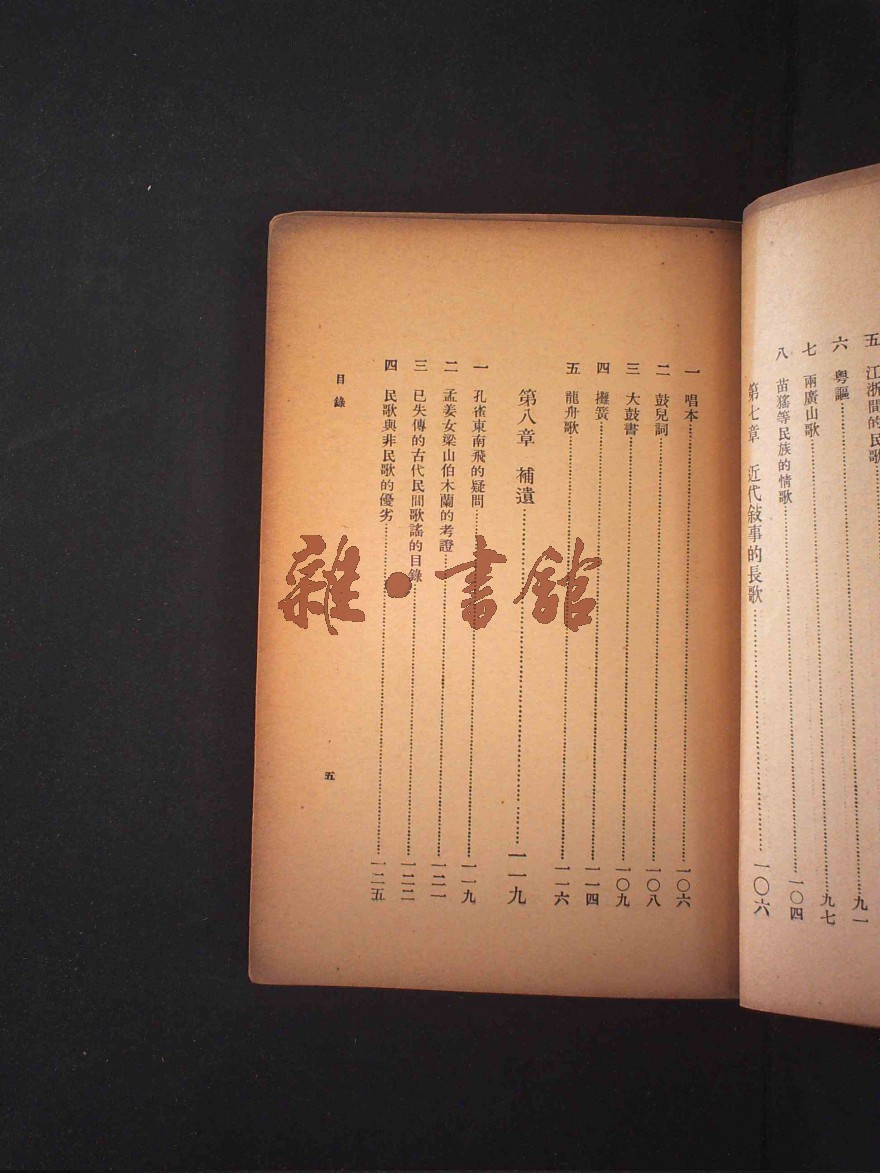 五 江浙間的民歌
六 粵謳……九一
七 兩廣山歌……九七
八 苗猺等民族的情歌……一〇四
第七章 近代敍事的長歌……一〇六
一 唱本……一〇六
二 鼓兒詞……一〇八
三 大鼓書……一〇九
四 攤簧……一一四
五 龍舟歌……一一六
第八章 補遺……一一九
一 孔雀東南飛的疑問……一一九
二 孟姜女梁山伯木蘭的考證……一二一
三 已失傳的古代民間歌謠的目錄……一二二
四 民歌與非民歌的優劣……一二五
目錄
五
雜·書館